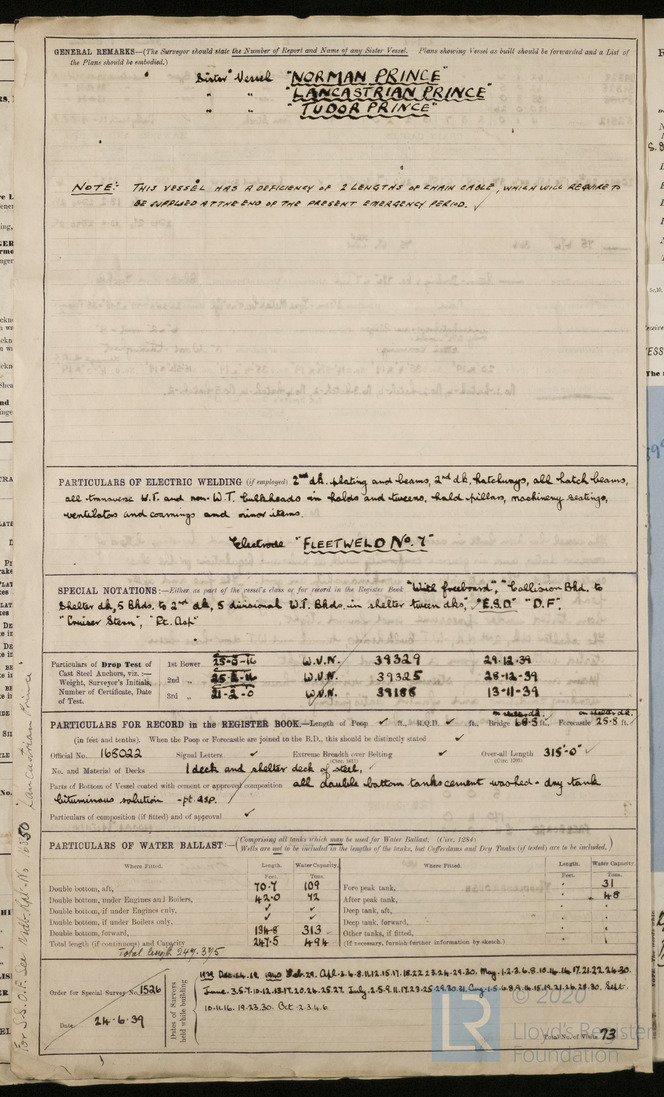 GENERAL REMARKS—(The Surveyor should state the Number of Report and Name of any Sister Vessel. Plans showing Vessel as built should be forwarded and a List of
the Plans should be embodied.)
Sister Vessel "NORMAN PRINCE"
" " "LANCASTRIAN PRINCE"
" " "TUDOR PRINCE"
NOTE:- THIS VESSEL HAS A DEFICIENCY OF 2 LENGTHS OF CHAIN CABLE, WHICH WILL REQUIRE TO
BE SUPPLIED AT THE END OF THE PRESENT EMERGENCY PERIOD. ✓
PARTICULARS OF ELECTRIC WELDING (if employed) 2nd dk. plating and beams, 2nd dk. hatchways, all hatch beams,
all transverse W.T. and non-W.T. bulkheads in holds and tweens, hold pillars, machinery seatings,
ventilators and coamings and minor items.
Electrode "FLEETWELD No. 7"
SPECIAL NOTATIONS:—Either as part of the vessel's class or for record in the Register Book "With freeboard", "Collision Bhd. to
Shelter dk, 5 Bhds. to 2nd dk, 5 divisional W.T. Bhds. in shelter tween dks", "E.S.D" "D.F",
"Cruiser Stern", "Pt. Asp"
Particulars of Drop Test of
Cast Steel Anchors, viz.:—
Weight, Surveyor's Initials,
Number of Certificate, Date
of Test.
1st Bower 25-3-16 W.V.N. 39329 29-12-39
2nd „ W.V.N. 39325 28-12-39
3rd „ 21-2-0 W.V.N. 39188 13-11-39
PARTICULARS FOR RECORD in the REGISTER BOOK.—Length of Poop ✓ ft., R.Q.D. ✓ ft., Bridge ft., Forecastle 25.8 ft.
on shelter dk. on shelter dk.
(in feet and tenths). When the Poop or Forecastle are joined to the B.D., this should be distinctly stated ✓
Official No. 168022 Signal Letters ✓ Extreme Breadth over Belting ✓ Over-all Length 315'-0"
No. and Material of Decks 1 deck and shelter deck of steel.
Parts of Bottom of Vessel coated with cement or approved composition all double bottom tanks cement washed - dry tank
bituminous solution - pt. asp.
Particulars of composition (if fitted) and of approval ✓
PARTICULARS OF WATER BALLAST:—(Comprising all tanks which may be used for Water Ballast. (Circ. 1284)
Wells are not to be included in the lengths of the tanks, but Cofferdams and Dry Tanks (if tested) are to be included.)
Where Fitted. Length. Water Capacity. Where Fitted. Length. Water Capacity.
Feet. Tons. Feet. Tons.
Double bottom, aft, 70.7 109 Fore peak tank, 31
Double bottom, under Engines and Boilers, 42.0 72 After peak tank, 48
Double bottom, if under Engines only, ✓ ✓ Deep tank, aft,
Double bottom, if under Boilers only, ✓ ✓ Deep tank, forward,
Double bottom, forward, 134.8 313 Other tanks, if fitted,
Total length (if continuous) and Capacity 247.5 494 (If necessary, furnish further information by sketch.)
Total length 247.375
Order for Special Survey No. 1526
Date 24-6-39
Dates of Surveys
held while building
1939 Dec. 14. 19. 1940 Feb. 29. Apl. 2.4.8.11.12.15.17.18.22.23.24.29.30. May. 1.2.3.6.8.10.14.16.17.21.22.24.30.
June. 3.5.7.10.12.13.17.20.24.25.27. July. 2.5.9.11.17.23.25.29.30.31. Aug. 1.5.6.8.9.14.15.19.21.26.28.30. Sept.
10.11.16.19.23.30. Oct. 2.3.4.6.
Total No. of Visits 73
© 2020
LR
Lloyd's Register
Foundation